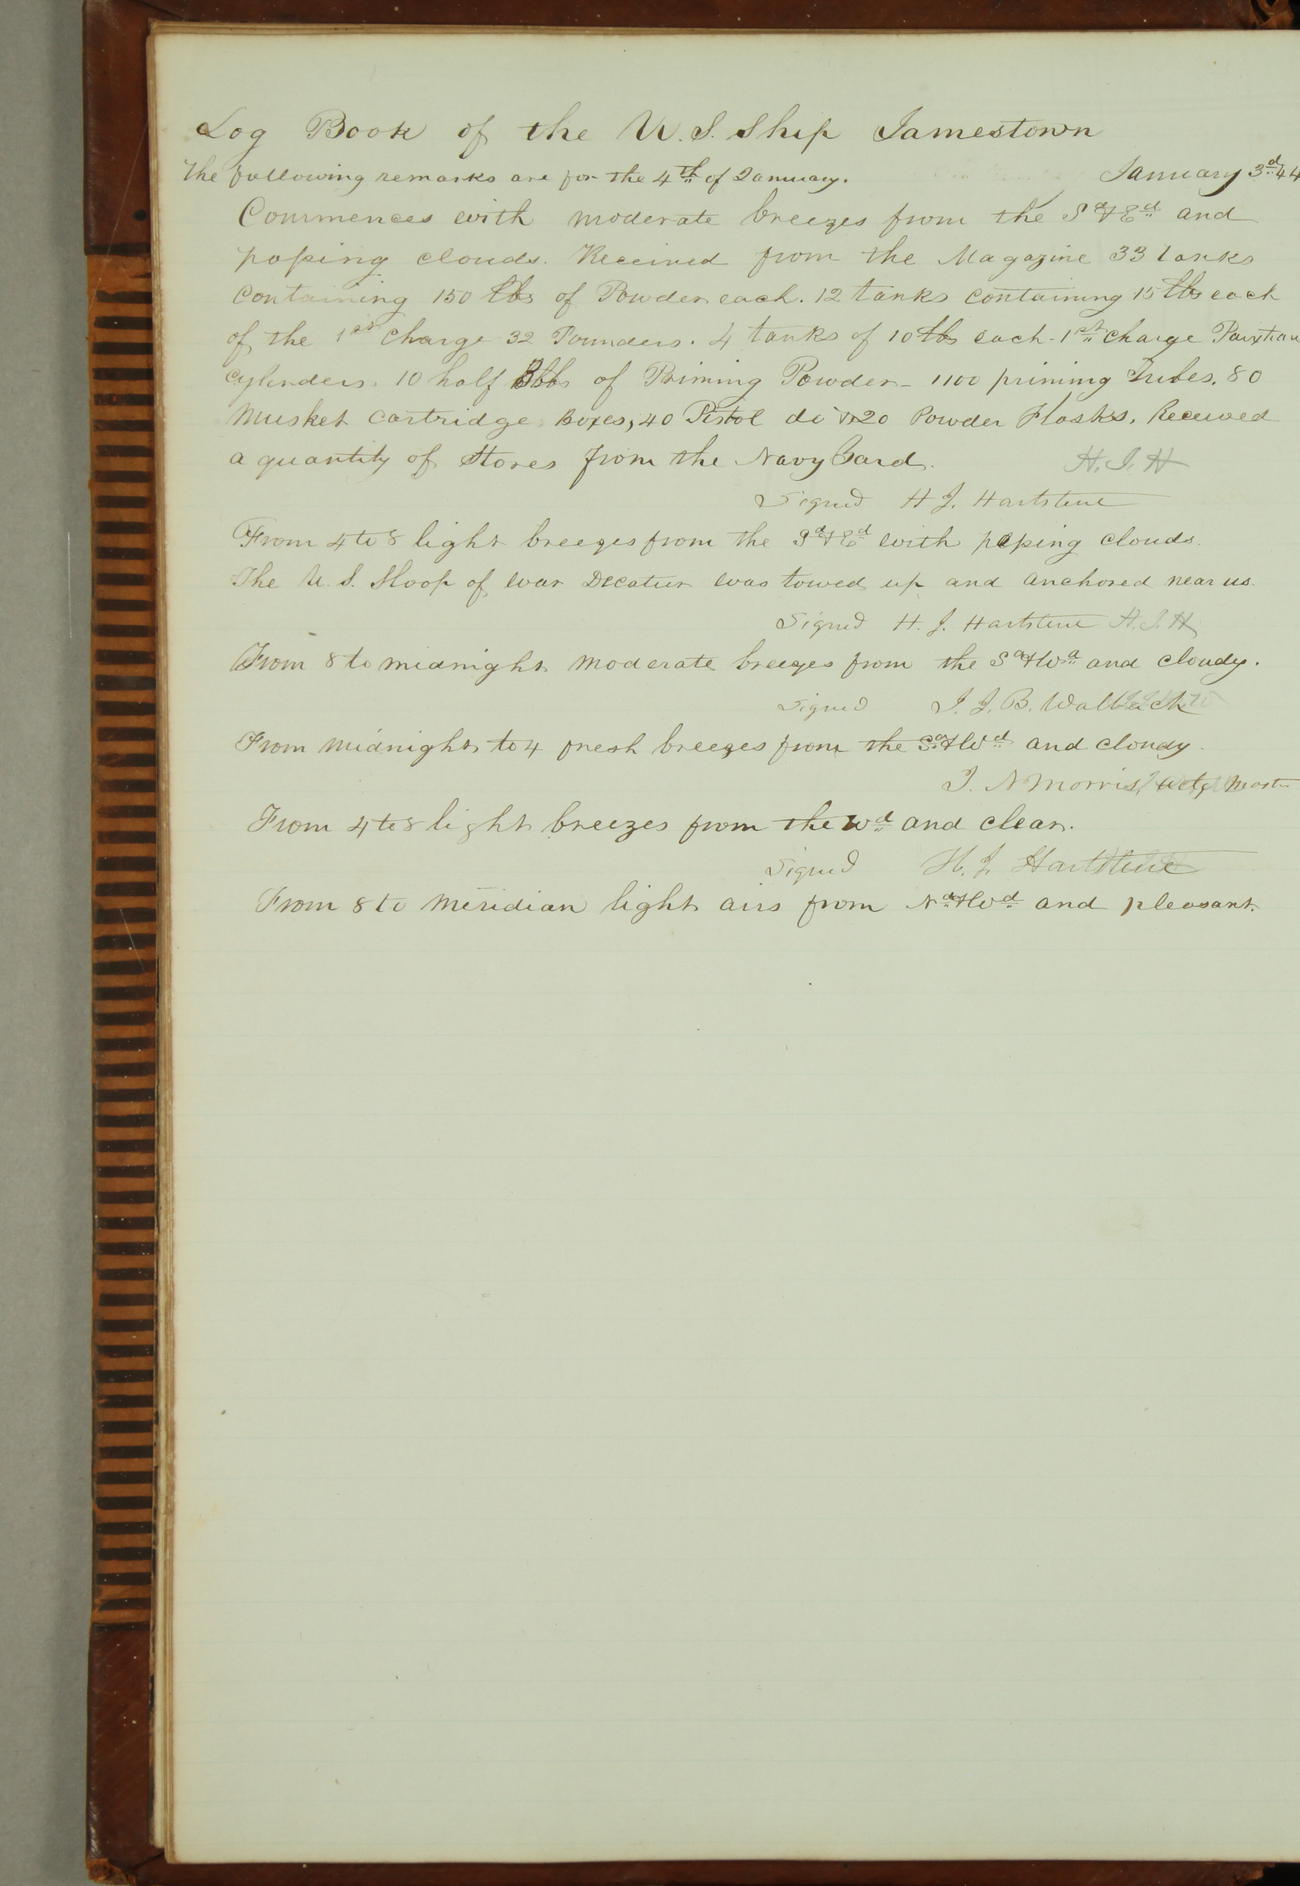 Log Book of the U.S. Ship Jamestown
The following remarks are for the 4th of January. January 3d 44
Commences with moderate breezes from the Sd & Ed and
passing clouds. Received from the Magazine 33 tanks
containing 150 lbs of Powder each. 12 tanks containing 15 lbs each
of the 1st Charge 32 Pounders. 4 tanks of 10 lbs each - 1st charge Paixhan
Cylinders. 10 half Bbls of Priming Powder - 1100 priming Tubes. 80
Musket Cartridge Boxes, 40 Pistol do & 20 Powder Flasks. Received
a quantity of Stores from the Navy Yard. H. J. H
Signed H J. Hartstene
From 4 to 8 light breezes from the Sd & Ed with passing clouds.
The U. S. Sloop of War Decatur was towed up and anchored near us.
Signed H. J. Hartstene H. J. H
From 8 to midnight moderate breezes from the Sd & Wd and cloudy.
Signed J. J. B. Walbach
From Midnight to 4 fresh breezes from the Sd & Wd and cloudy.
J. N Morris, actg Master
From 4 to 8 light breezes from the Wd and clear.
Signed H. J. Hartstene
From 8 to Meridian light airs from Nd & Wd and pleasant.